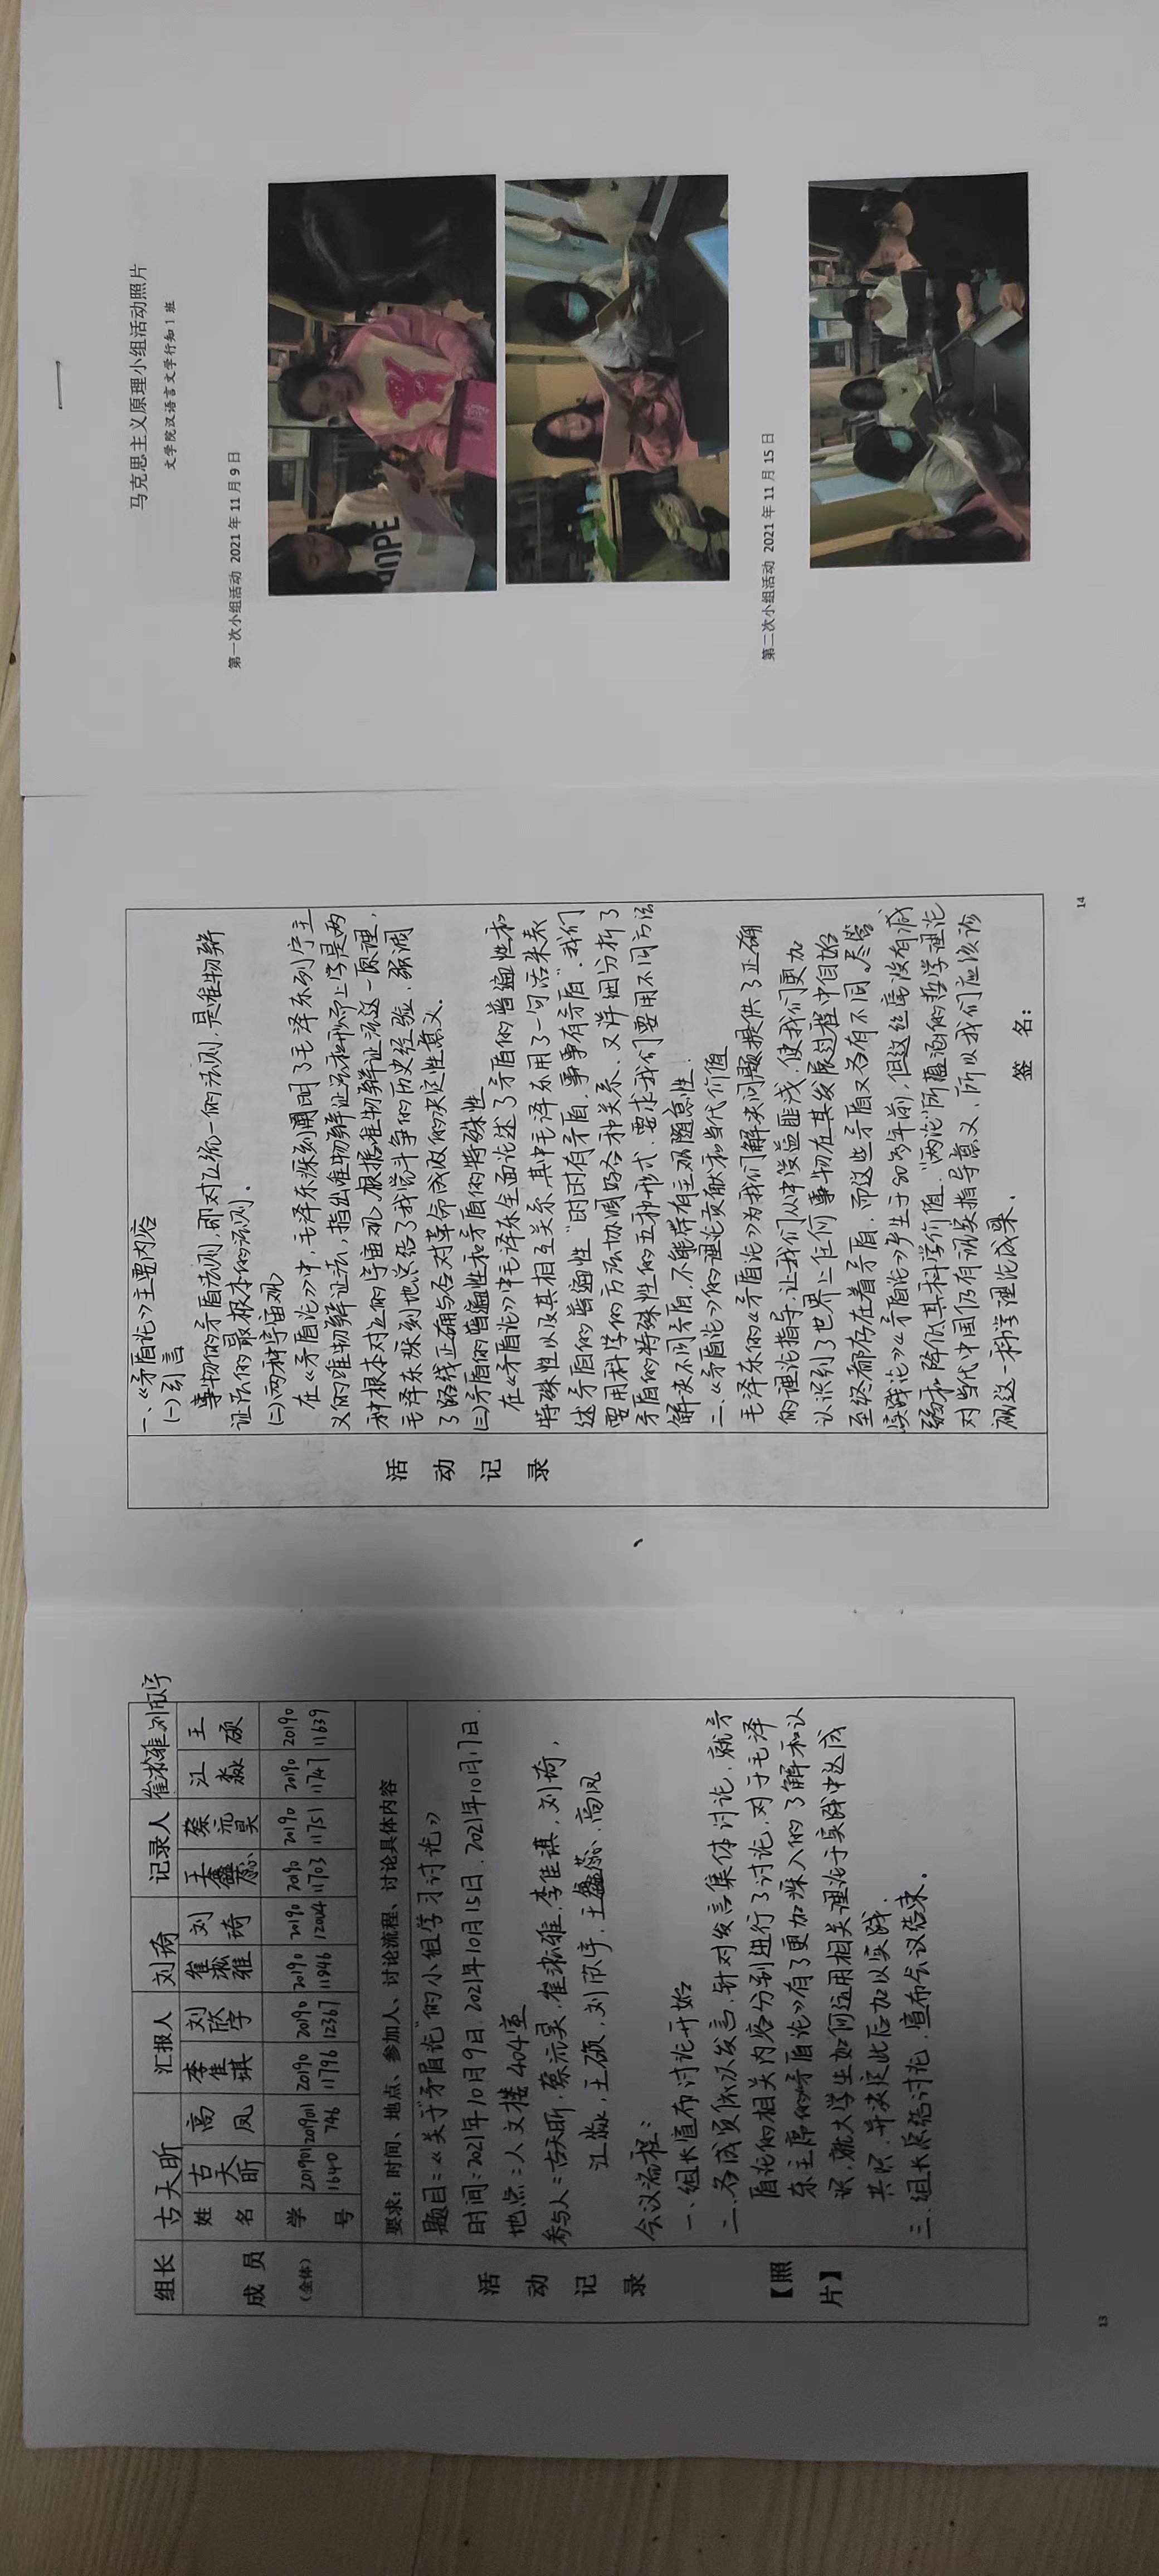 组长 古天昕 汇报人 刘琦 记录人 崔淞雅 刘欣宇
成员 (全体)
姓名 古天昕 高凤 李佳琪 刘欣宇 崔淞雅 刘琦 王鑫蕊 蔡沅昊 江淼 王硕
学号 2019011640 2019011746 2019011796 2019012367 2019011846 2019012004 2019011703 2019011751 2019011747 2019011639
活动记录
【照片】
要求：时间、地点、参加人、讨论流程、讨论具体内容
题目：《关于“矛盾论”的小组学习讨论》
时间：2021年10月9日、2021年10月15日、2021年10月17日
地点：人文楼404室
参与人：古天昕、蔡沅昊、崔淞雅、李佳琪、刘琦、
江淼、王硕、刘欣宇、王鑫蕊、高凤
会议流程：
一、组长宣布讨论开始
二、各成员依次发言，针对发言集体讨论，就矛
盾论的相关内容分别进行了讨论，对于毛泽
东主席的《矛盾论》有了更加深入的了解和认
识，就大学生如何运用相关理论于实践中达成
共识，并决定此后加以实践。
三、组长总结讨论，宣布会议结束。
13
活动记录
一、《矛盾论》主要内容
(一)引言
事物的矛盾法则，即对立统一的法则，是唯物辩
证法的最根本的法则。
(二)两种宇宙观
在《矛盾论》中，毛泽东深刻阐明了毛泽东列宁主
义的唯物辩证法，指出唯物辩证法和形而上学是两
种根本对立的宇宙观，根据唯物辩证法这一原理，
毛泽东深刻地总结了我党斗争的历史经验，强调
了路线正确与否对革命成败的决定性意义。
(三)矛盾的普遍性和矛盾的特殊性
在《矛盾论》中毛泽东全面论述了矛盾的普遍性和
特殊性以及其相互关系，其中毛泽东用了一句话来表
述矛盾的普遍性“时时有矛盾，事事有矛盾”，我们
要用科学的方法协调好各种关系，又详细分析了
矛盾的特殊性的五种形式，要求我们要用不同方法
解决不同矛盾，不能带有主观随意性。
二、《矛盾论》的理论贡献和当代价值
毛泽东的《矛盾论》为我们解决问题提供了正确
的理论指导，让我们从中受益匪浅，使我们更加
认识到了世界上任何事物在其发展过程中自始
至终都存在着矛盾，而这些矛盾又各有不同。尽管
实践论》《矛盾论》产生于80多年前，但这丝毫没有减
弱和降低其科学价值，“两论”所蕴涵的哲学理论
对当代中国仍有现实指导意义，所以我们应该珍
视这一科学理论成果。
签 名：
14
马克思主义原理小组活动照片
文学院汉语言文学行知1班
第一次小组活动 2021年11月9日
HOPE
第二次小组活动 2021年11月15日